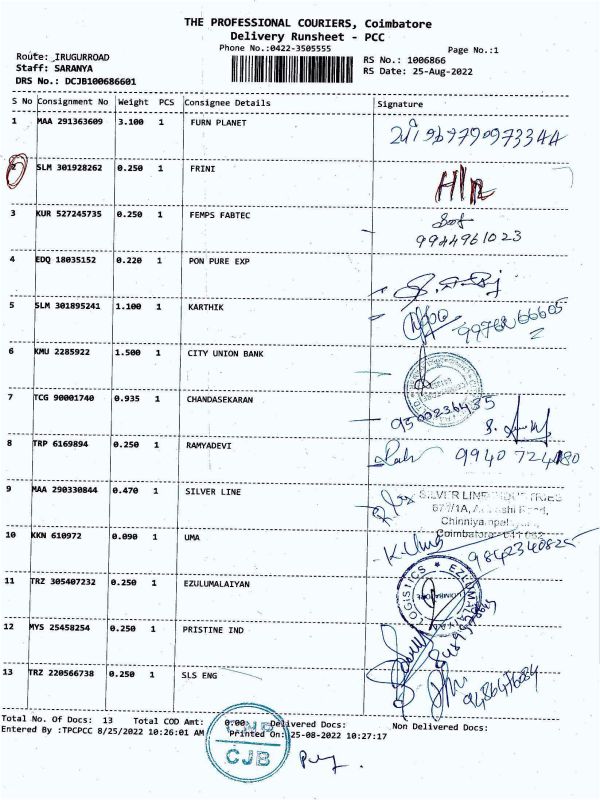 THE PROFESSIONAL COURIERS, Coimbatore
Delivery Runsheet - PCC
Phone No.:0422-3505555
Page No.:1
Route: IRUGURROAD
RS No.: 1006866
Staff: SARANYA
RS Date: 25-Aug-2022
DRS No.: DCJB100686601
S No Consignment No Weight PCS Consignee Details Signature
1 MAA 291363609 3.100 1 FURN PLANET
2 SLM 301928262 0.250 1 FRINI
3 KUR 527245735 0.250 1 FEMPS FABTEC
9944961023
4 EDQ 18035152 0.220 1 PON PURE EXP
5 SLM 301895241 1.100 1 KARTHIK
6 KMU 2285922 1.500 1 CITY UNION BANK
7 TCG 90001740 0.935 1 CHANDASEKARAN
9500236435
8 TRP 6169894 0.250 1 RAMYADEVI
9 MAA 290330844 0.470 1 SILVER LINE
SILVER LINE INDUSTRIES
Coimbatore
10 KKN 610972 0.090 1 UMA
K. Uma
9842340825
11 TRZ 305407232 0.250 1 EZULUMALAIYAN
LOGISTICS
12 MYS 25458254 0.250 1 PRISTINE IND
13 TRZ 220566738 0.250 1 SLS ENG
Total No. Of Docs: 13 Total COD Amt: 0.00 Delivered Docs: Non Delivered Docs:
Entered By :TPCPCC 8/25/2022 10:26:01 AM Printed On: 25-08-2022 10:27:17
CJB